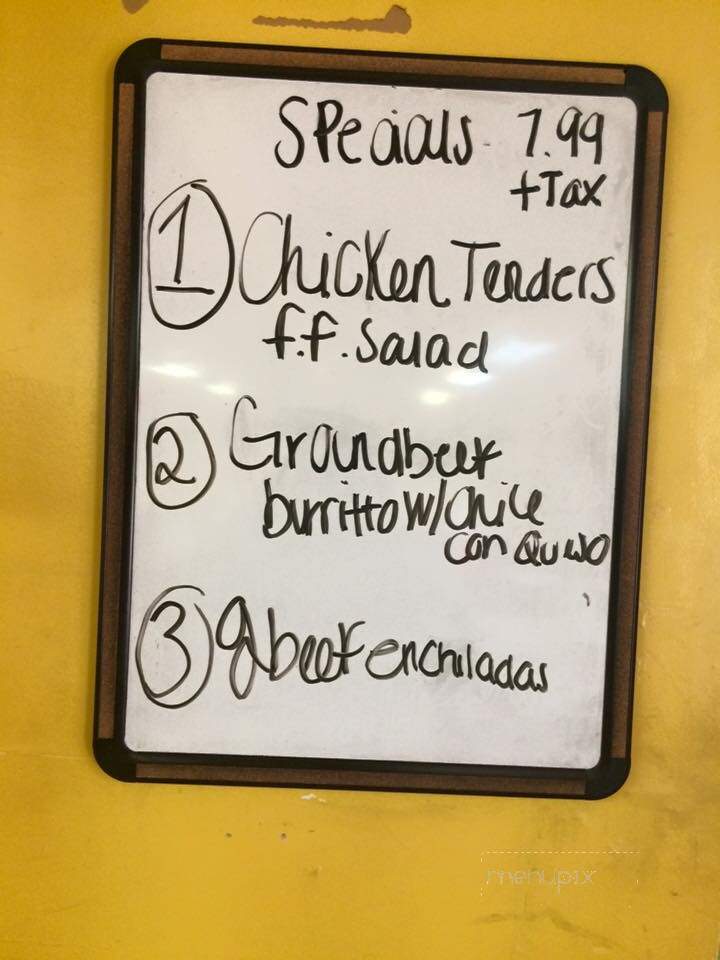 Specials 7.99
+Tax
1 Chicken Tenders
f.f. Salad
2 Groundbeef
burritto w/ Chile
con Queso
3 g beef enchiladas
menupix